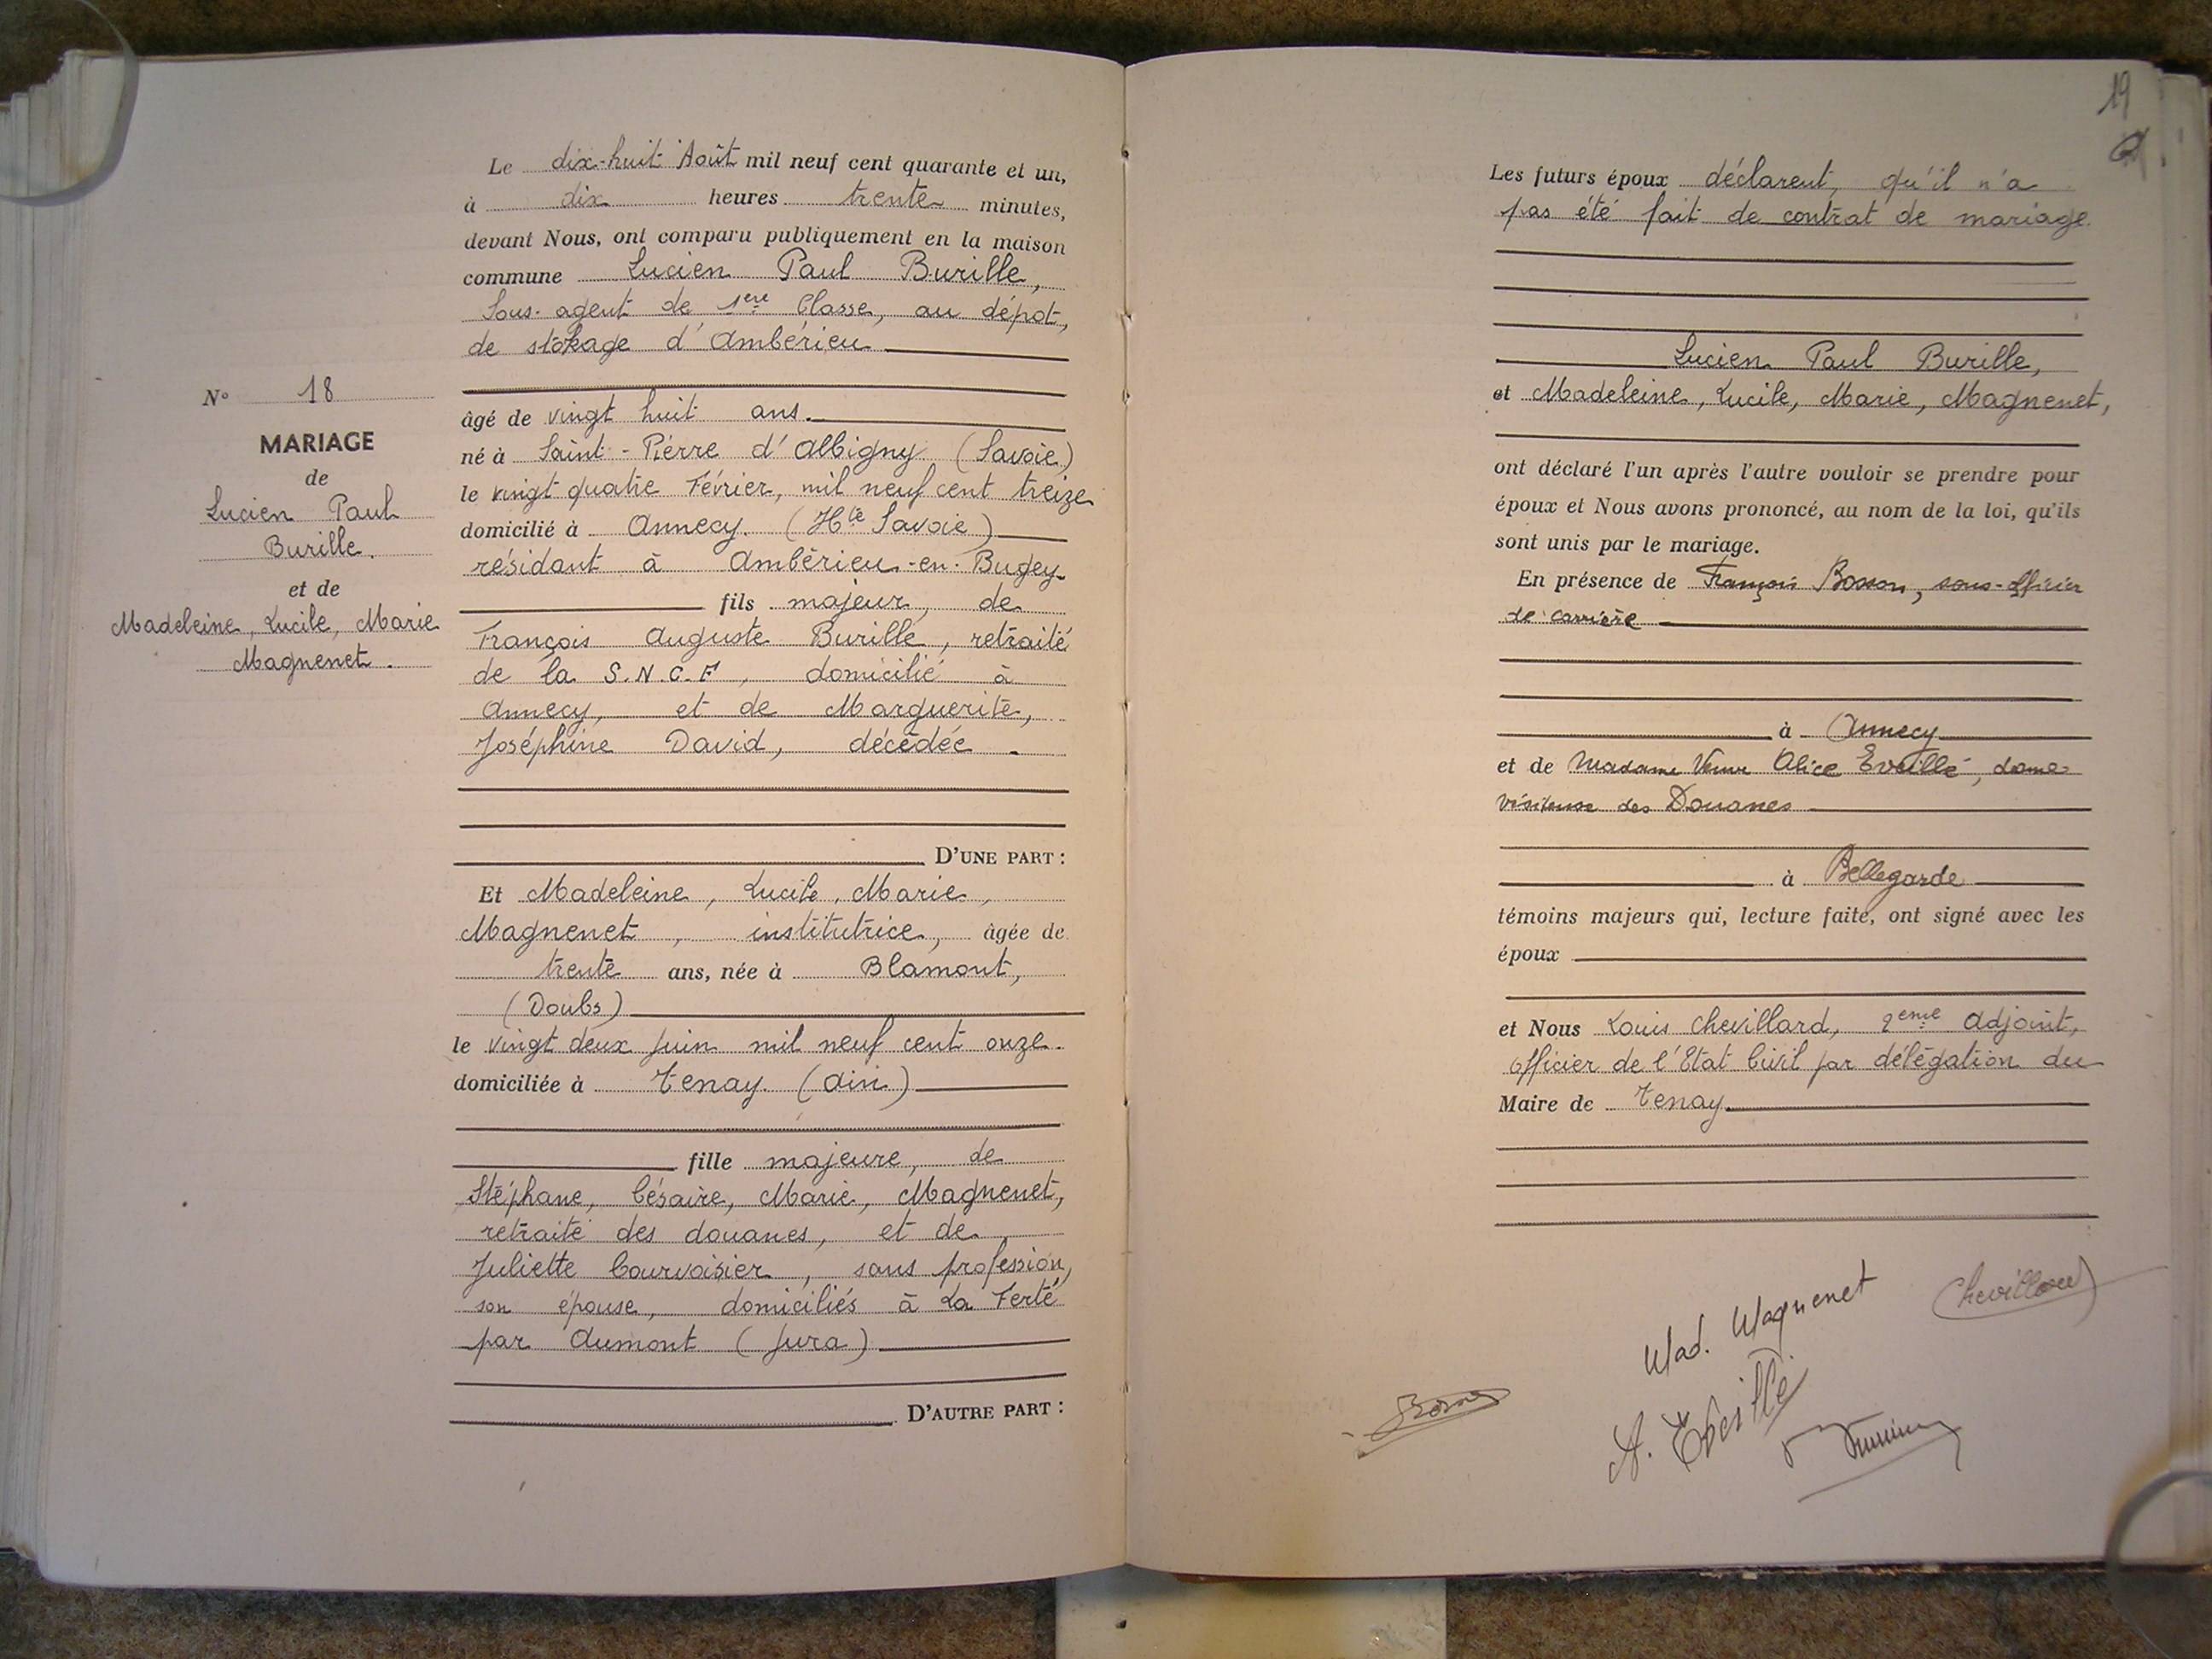 N° 18
MARIAGE
de
Lucien Paul
Burille.
et de
Madeleine, Lucile, Marie
Magnenet.
Le dix-huit Août mil neuf cent quarante et un,
à dix heures trente minutes,
devant Nous, ont comparu publiquement en la maison
commune Lucien Paul Burille,
Sous-agent de 1ère Classe, au dépot,
de stokage d'Ambérieu
âgé de vingt huit ans.
né à Saint-Pierre d'Albigny (Savoie)
le vingt quatre Février, mil neuf cent treize
domicilié à Annecy. (Hte Savoie)
résidant à Ambérieu-en-Bugey
fils majeur, de
François Auguste Burille, retraité
de la S.N.C.F, domicilié à
Annecy, et de Marguerite,
Joséphine David, décédée.
D'UNE PART :
Et Madeleine, Lucile, Marie,
Magnenet, institutrice, âgée de
trente ans, née à Blamont,
(Doubs)
le vingt deux Juin mil neuf cent onze.
domiciliée à Tenay. (Ain)
fille majeure, de
Stéphane, Césaire, Marie, Magnenet,
retraité des douanes, et de
Juliette Courvoisier, sans profession,
son épouse, domiciliés à La Ferté
par Aumont (Jura)
D'AUTRE PART :
19
Les futurs époux déclarent, qu'il n'a
pas été fait de contrat de mariage.
Lucien Paul Burille,
et Madeleine, Lucile, Marie, Magnenet,
ont déclaré l'un après l'autre vouloir se prendre pour
époux et Nous avons prononcé, au nom de la loi, qu'ils
sont unis par le mariage.
En présence de François Bosson, sous-officier
de carrière
à Annecy
et de Madame Veuve Alice Eveillé, dame
visiteuse des Douanes
à Bellegarde
témoins majeurs qui, lecture faite, ont signé avec les
époux
et Nous Louis Chevillard, 2eme adjoint,
officier de l'Etat Civil par délégation du
Maire de Tenay
Mad. Magnenet
Chevillard
A. Eveillé